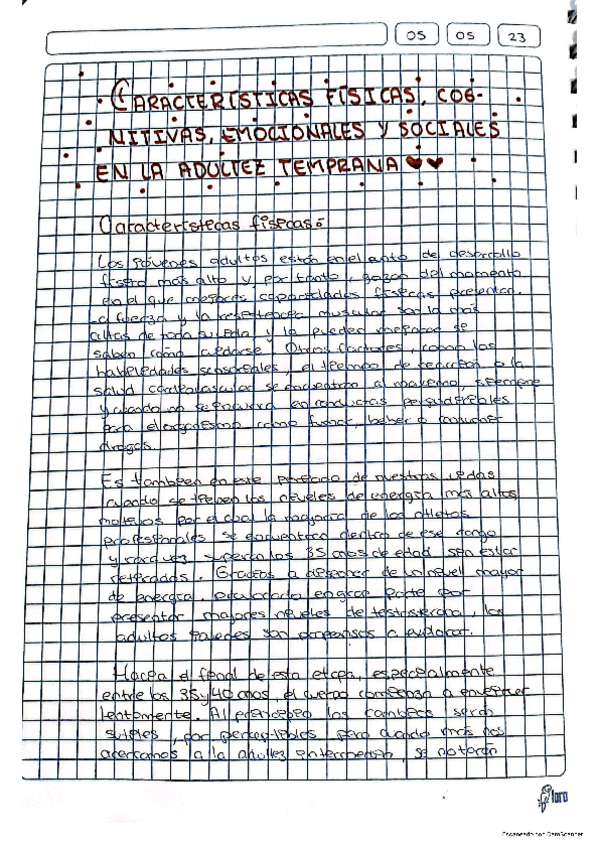 05 05 23
CARACTERÍSTICAS FÍSICAS, COG-
NITIVAS, EMOCIONALES Y SOCIALES
EN LA ADULTEZ TEMPRANA
Características físicas:
Los jóvenes adultos están en el punto de desarrollo
físico más alto y, por tanto, gozan del momento
en el que mejores capacidades físicas presentan.
La fuerza y la resistencia muscular son la más
altas de toda su vida y la pueden mejorar se
saben como cuidarse. Otros factores, como las
habilidades sensoriales, el tiempo de reacción o la
salud cardiovascular se encuentran al máximo, siempre
y cuando no se incurra en conductas perjudiciales
para el organismo como fumar, beber o consumir
drogas.
Es también en este periodo de nuestras vidas
cuando se tienen los niveles de energía más altos,
motivos por el cual la mayoría de los atletas
profesionales se encuentran dentro de ese rango
y rara vez superan los 35 años de edad sin estar
retirados. Gracias a disponer de un nivel mayor
de energía, en gran parte por
presentar mayores niveles de testosterona, los
adultos son propensos a explorar.
Hacia el final de esta etapa, especialmente
entre los 35 y 40 años, el cuerpo comienza a envejecer
lentamente. Al principio los cambios serán
sutiles, perceptibles pero cuando más nos
acercamos a la adultez intermedia, se notarán
loro
Escaneado con CamScanner